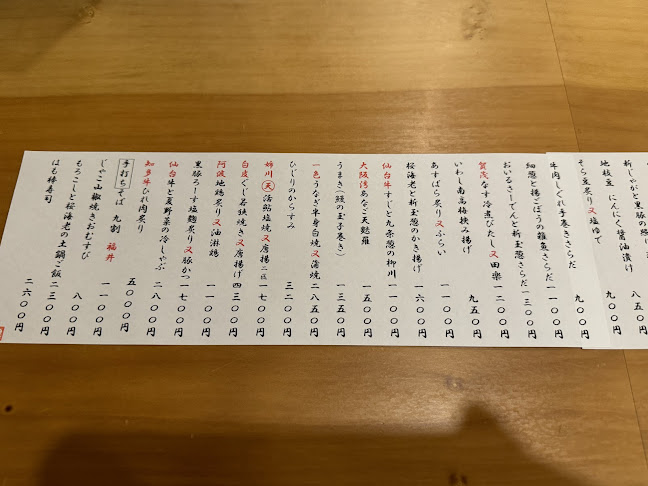 新じゃがと黒豚の
八五〇円
地枝豆 にんにく醤油漬け 九〇〇円
そら豆炙り又塩ゆで 九〇〇円
牛肉しぐれ手巻きさらだ 九〇〇円
細葱と揚ごぼうの雑魚さらだ 一一〇〇円
おいるさーでんと新玉葱さらだ 一三〇〇円
賀茂なす冷煮びたし又田楽 一二〇〇円
いわし南高梅挟み揚げ 九五〇円
あすぱら炙り又ふらい 一一〇〇円
桜海老と新玉葱のかき揚げ 一六〇〇円
仙台牛すじと九条葱の柳川 一一〇〇円
大阪湾あなご天麩羅 一五〇〇円
うまき(鰻の玉子巻き) 一三五〇円
一色うなぎ半身白焼又蒲焼 二八五〇円
ひじりのからすみ 三二〇〇円
姉川天活鮎塩焼又唐揚二匹 一七〇〇円
白皮ぐじ若狭焼き又唐揚げ 四三〇〇円
阿波地鶏炙り又油淋鶏 一一〇〇円
黒豚ろーす塩麹炙り又豚かつ 一七〇〇円
仙台牛と夏野菜の冷しゃぶ 二八〇〇円
知多牛ひれ肉炙り 五〇〇〇円
手打ちそば 九割 福井 一一〇〇円
じゃこ山椒焼きおむすび 八〇〇円
もろこしと桜海老の土鍋ご飯 二三〇〇円
はも棒寿司 二六〇〇円